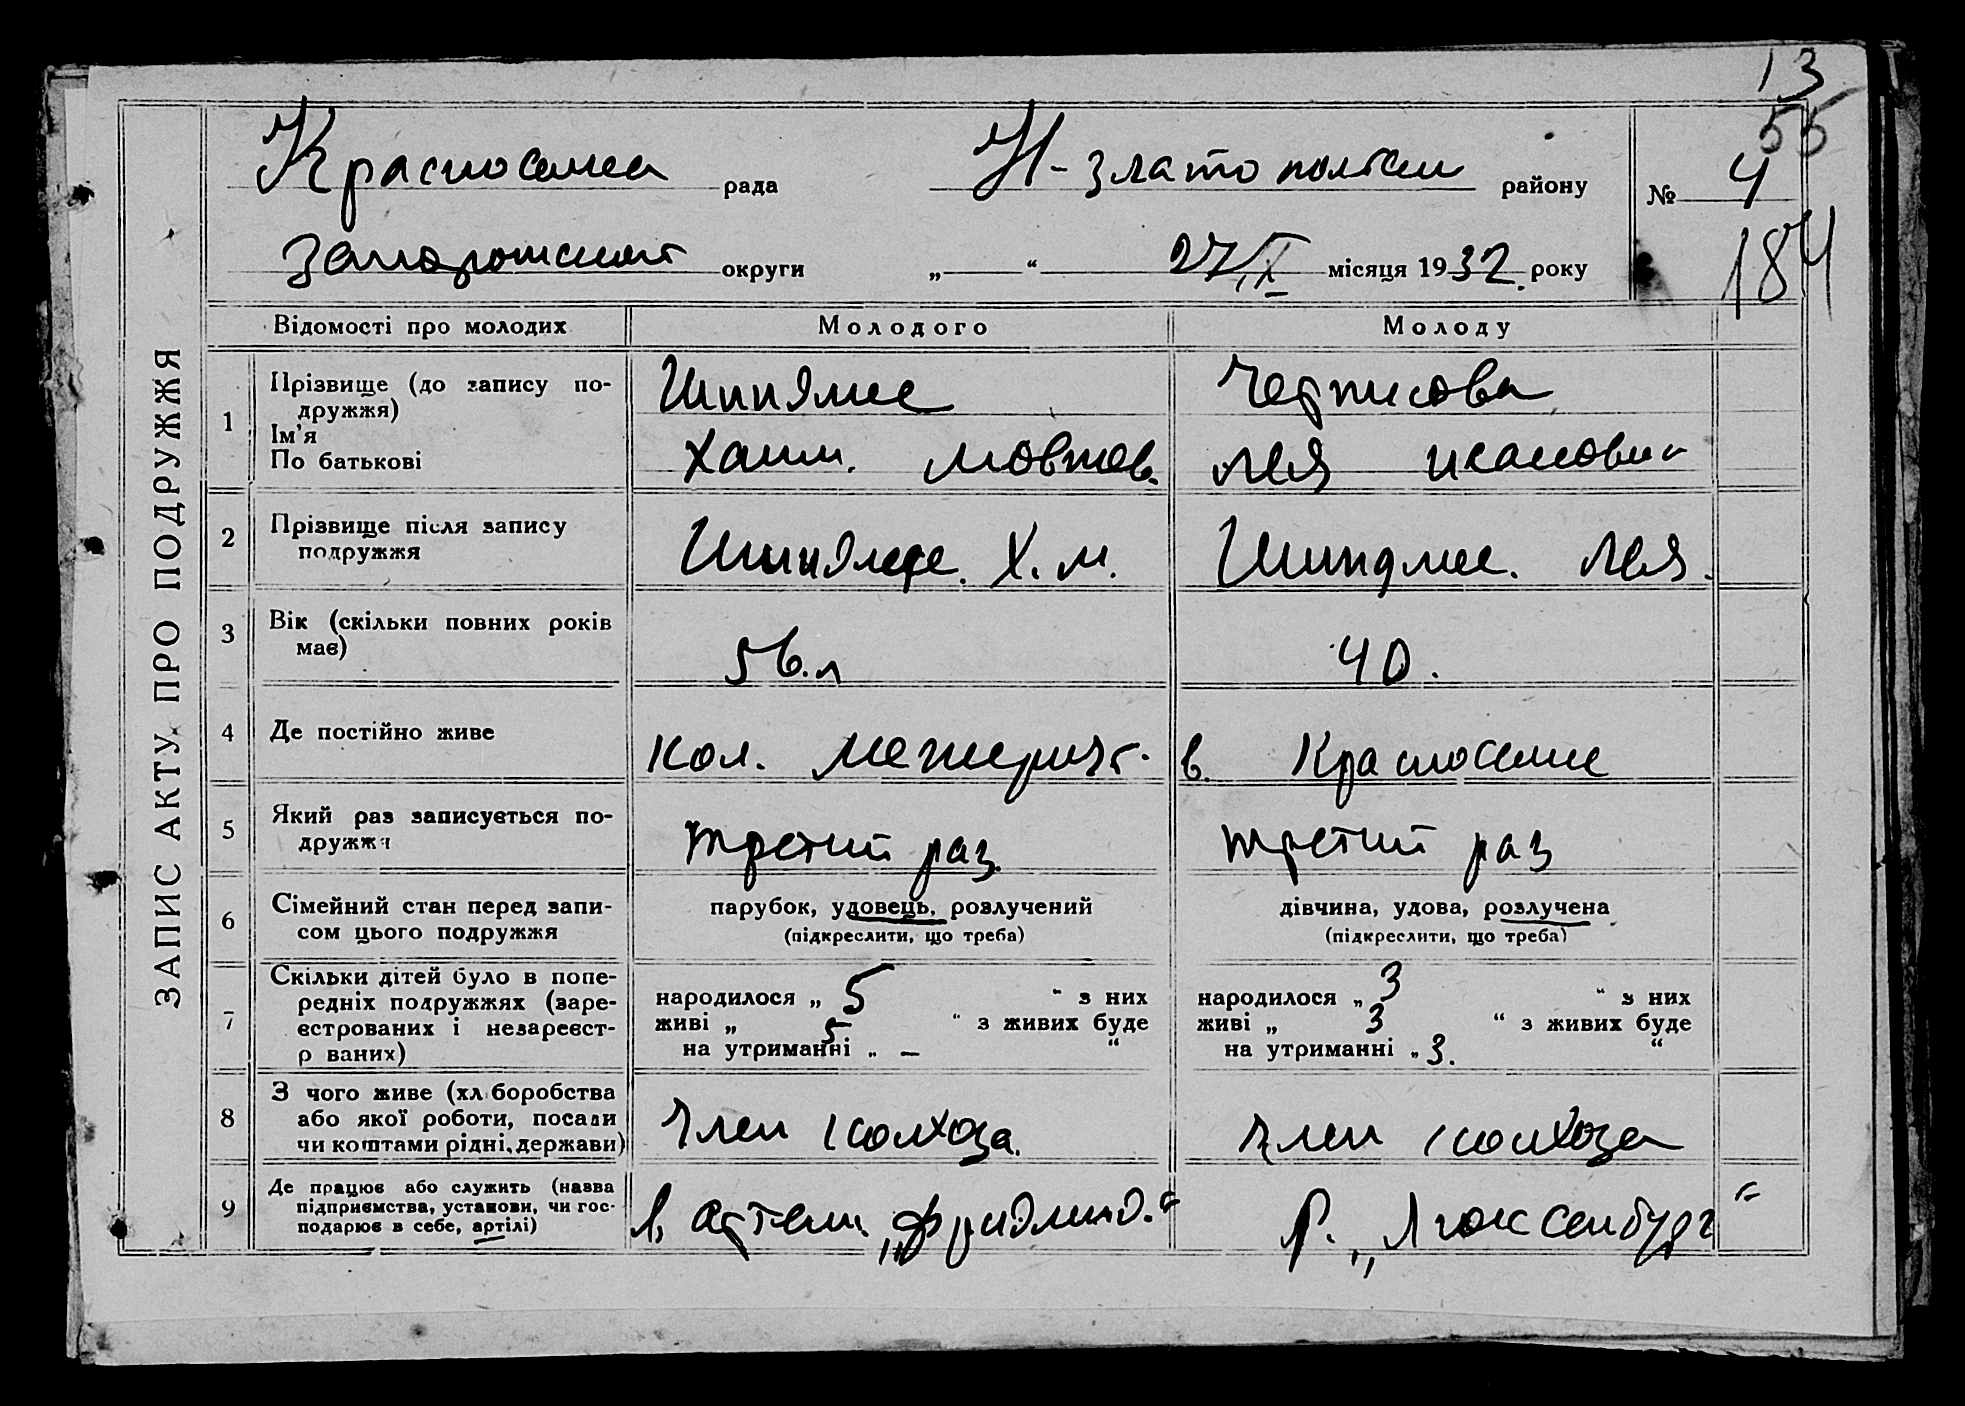 13
55
Красноселка рада Н-златополски району № 4
Запорожский округи „ “ 27/X місяця 1932. року
184
ЗАПИС АКТУ ПРО ПОДРУЖЖЯ
Відомості про молодих Молодого Молоду
1 Прізвище (до запису по-
дружжя)
Ім'я
По батькові
Шиндлес
Хаим. Мовшев.
Чернисова
Лея
2 Прізвище після запису
подружжя
Х. М.
Лея.
3 Вік (скільки повних років
має)
56.л
40.
4 Де постійно живе
кол. Межерич.
в. Красноселке
5 Який раз записується по-
дружжя
третий раз
третий раз
6 Сімейний стан перед запи-
сом цього подружжя
парубок, удовець, розлучений
(підкреслити, що треба)
дівчина, удова, розлучена
(підкреслити, що треба)
7 Скільки дітей було в попе-
редніх подружжях (заре-
єстрованих і незареєст-
р ваних)
народилося „ 5 “ з них
живі „ 5 “ з живих буде
на утриманні „ — “
народилося „ 3 “ з них
живі „ 3 “ з живих буде
на утриманні „ 3. “
8 З чого живе (хл боробства
або якої роботи, посади
чи коштами рідні, держави)
Член колхоза.
член колхоза
9 Де працює або служить (назва
підприємства, установи, чи гос-
подарює в себе, артілі)
в артели „Фридлинд.“
Р. „Люксембург“